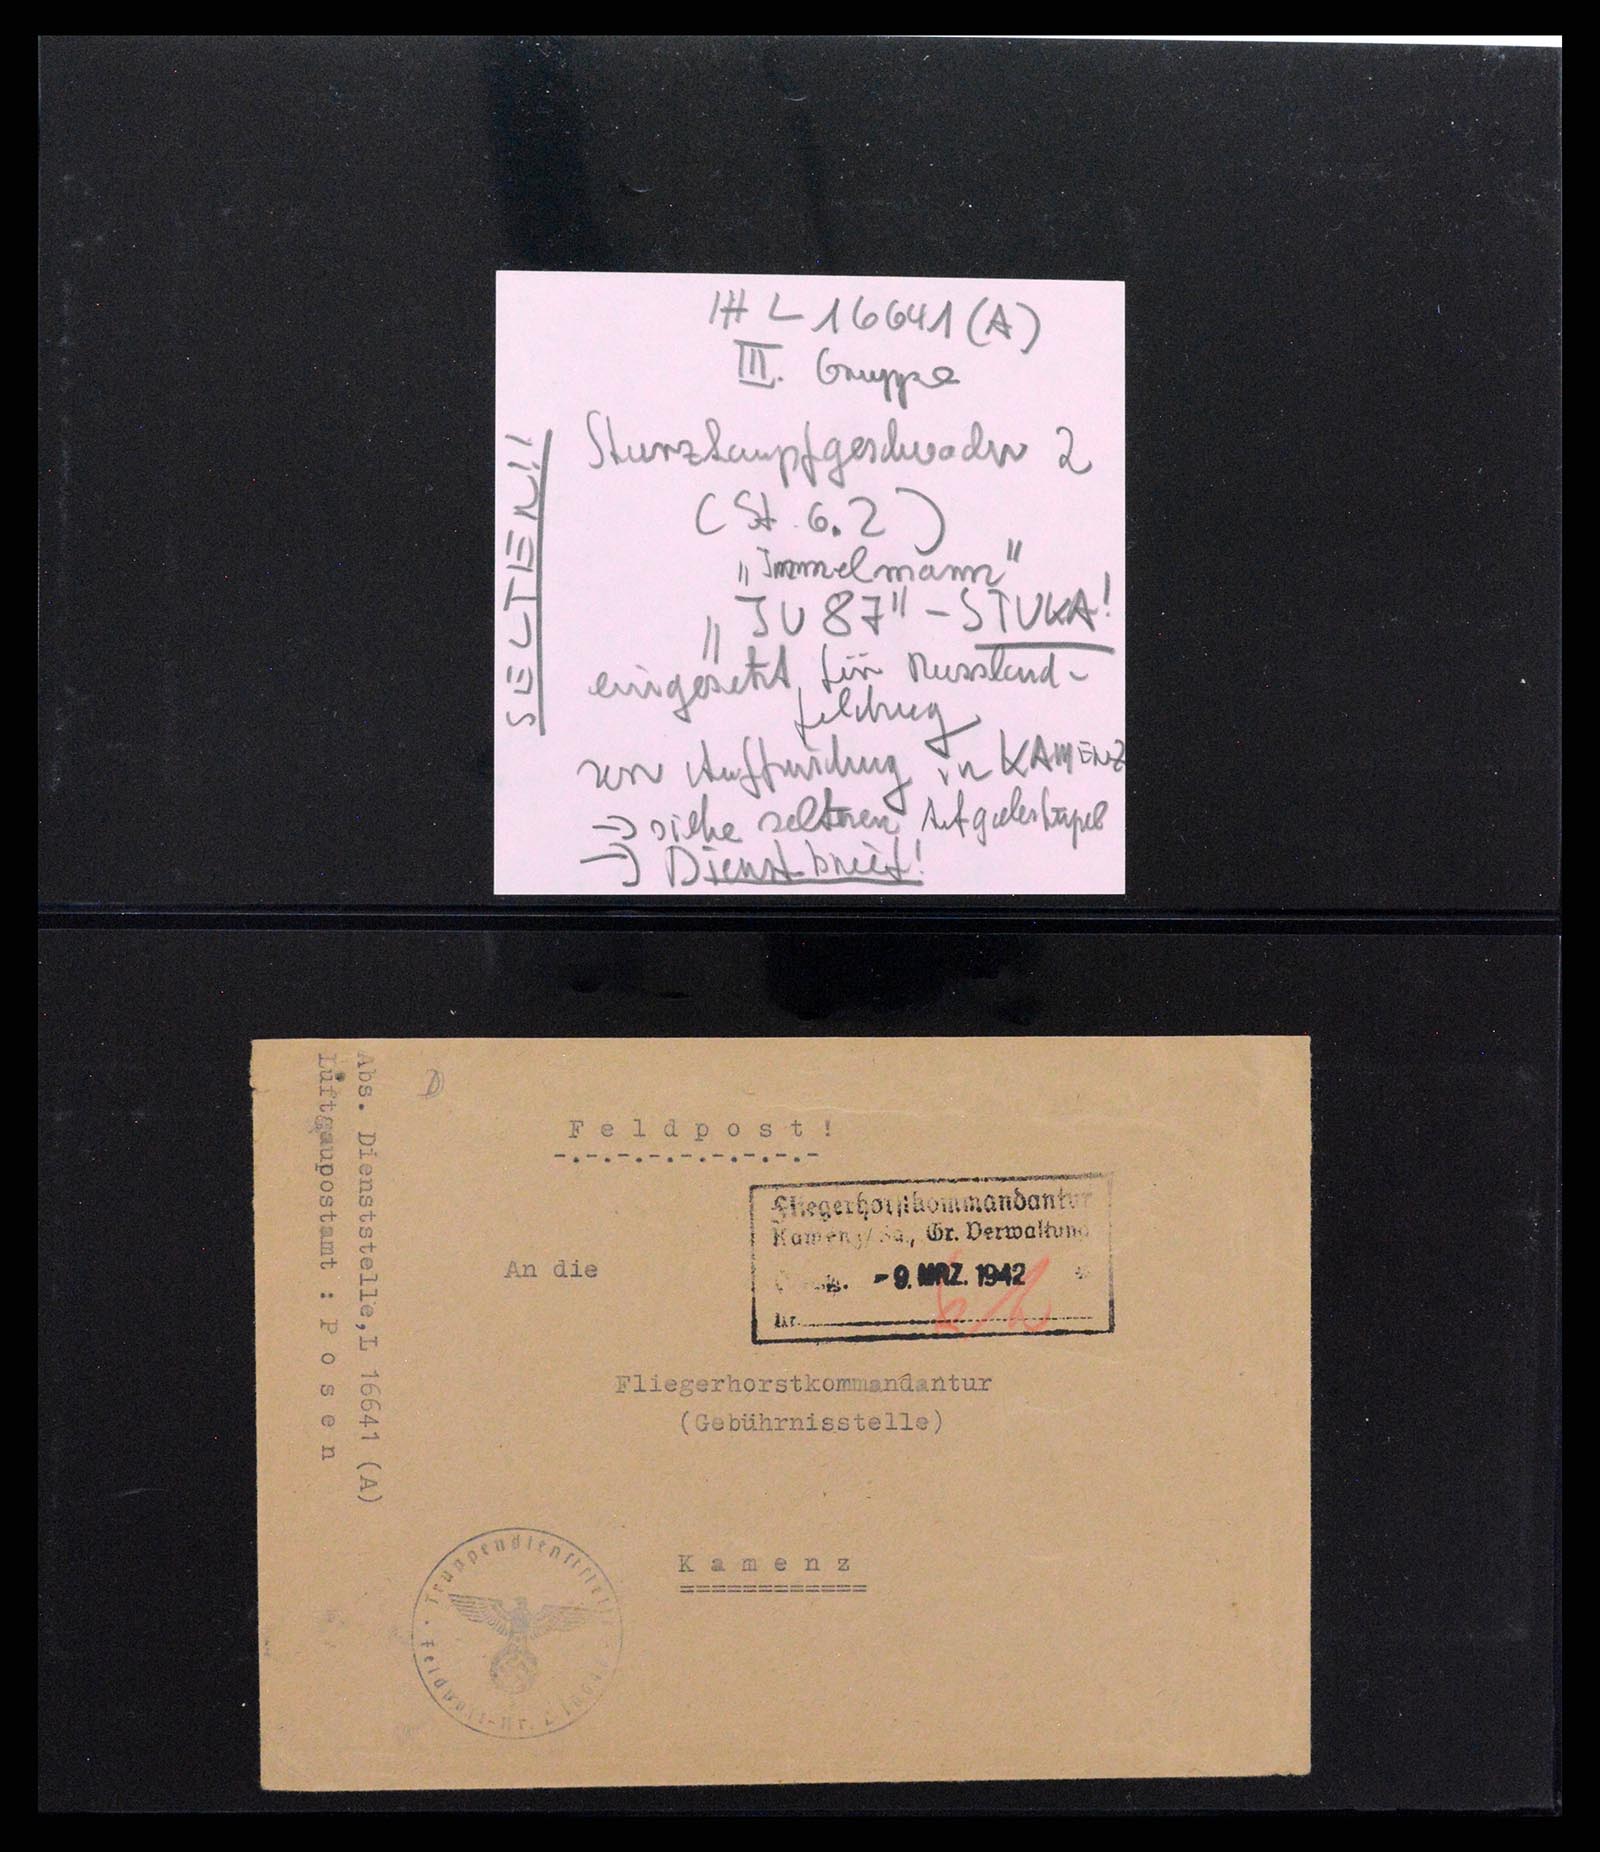 L 16641 (A)
III. Gruppe
Sturzkampfgeschwader 2
(St. G. 2)
„Immelmann"
„JU 87" - STUKA!
eingesetzt für Russland-
feldzug
zur Auffrischung in KAMENZ
→ siehe seltenen
→ Dienstbrief!
SELTEN!!
Abs. Dienststelle, L 16641 (A)
Luftgaupostamt : P o s e n
F e l d p o s t !
-.-.-.-.-.-.-.-.-
Fliegerhorstkommandantur
Kamenz/Sa., Gr. Verwaltung
-9. MRZ. 1942
Nr.
An die
Fliegerhorstkommandantur
(Gebührnisstelle)
K a m e n z
============
Truppendienststelle
Feldpost-Nr. L 16641